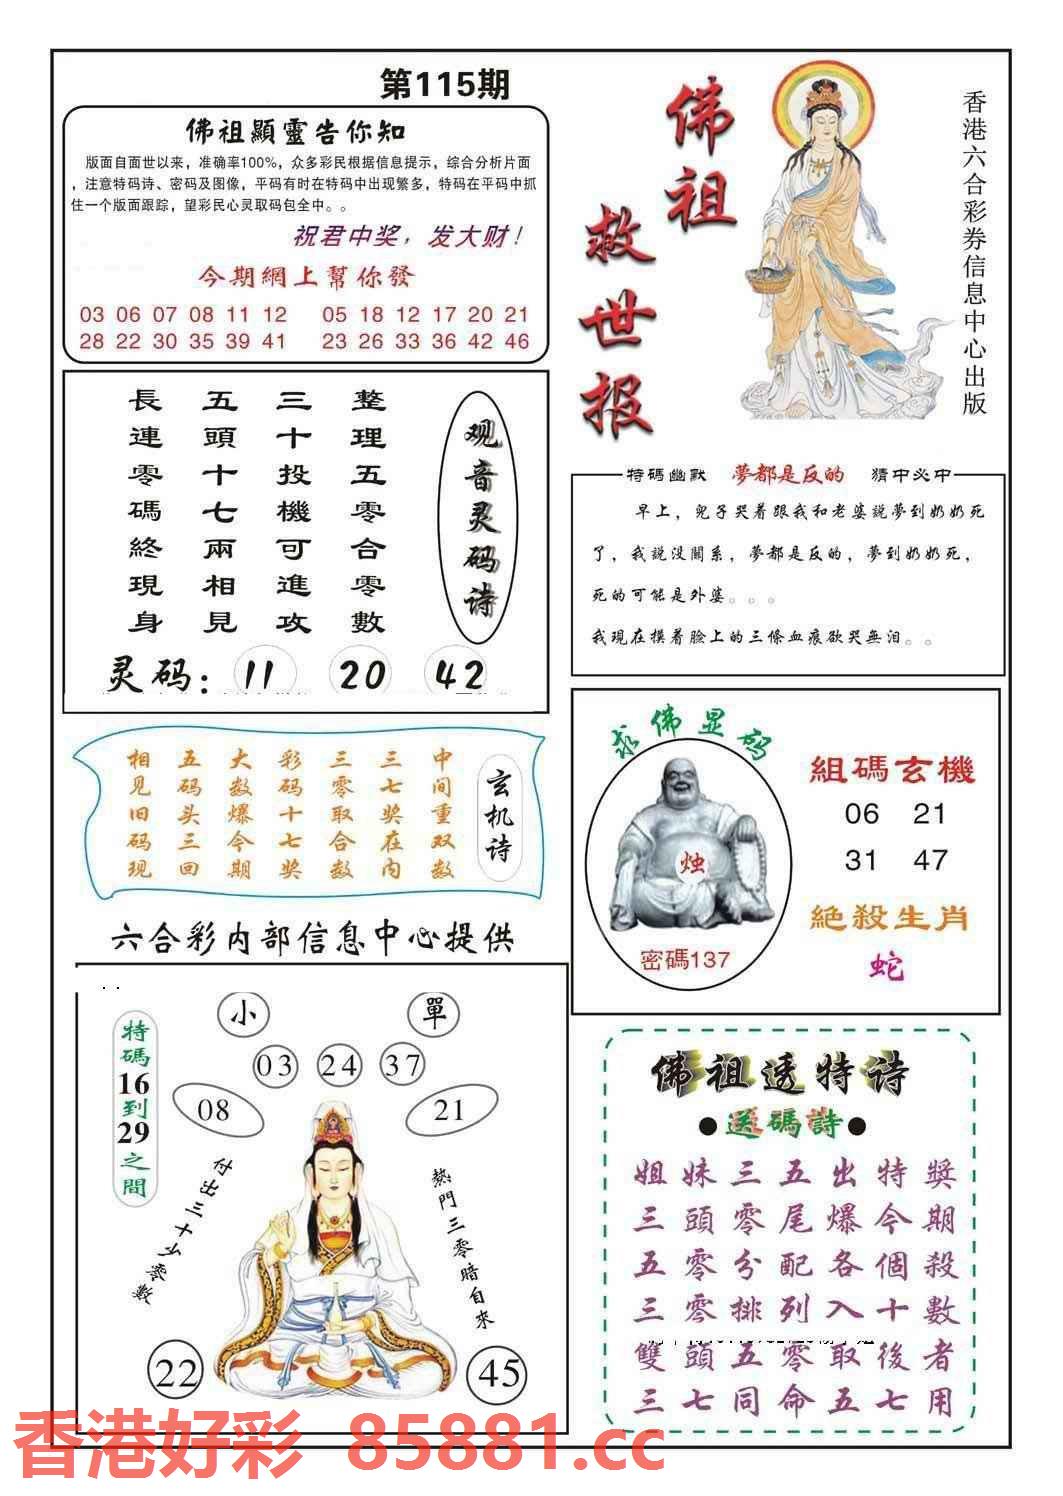 第115期
佛祖顯靈告你知
版面自面世以来，准确率100%，众多彩民根据信息提示，综合分析片面
，注意特码诗、密码及图像，平码有时在特码中出现繁多，特码在平码中抓
住一个版面跟踪，望彩民心灵取码包全中。。
祝君中奖，发大财！
今期網上幫你發
03 06 07 08 11 12 05 18 12 17 20 21
28 22 30 35 39 41 23 26 33 36 42 46
佛祖
救世报
香港六合彩券信息中心出版
观音灵码诗
整理五零合零數
三十投機可進攻
五頭十七兩相見
長連零碼終現身
灵码：11 20 42
特碼幽默 夢都是反的 猜中必中
早上，兒子哭着跟我和老婆説夢到奶奶死
了，我説没關系，夢都是反的，夢到奶奶死，
死的可能是外婆。。。
我現在摸着臉上的三條血痕欲哭無泪。。
玄机诗
中间重双数
三七奖在内
三零取合数
彩码十七奖
大数爆今期
五码头三回
相见旧码现
求佛显码
烛
密碼137
組碼玄機
06 21
31 47
絕殺生肖
蛇
六合彩内部信息中心提供
特碼16到29之間
小 單
03 24 37
08 21
付出三十少零數
熱門三零暗自來
22 45
佛祖透特诗
●送碼詩●
姐妹三五出特獎
三頭零尾爆今期
五零分配各個殺
三零排列入十數
雙頭五零取後者
三七同命五七用
香港好彩 85881.cc